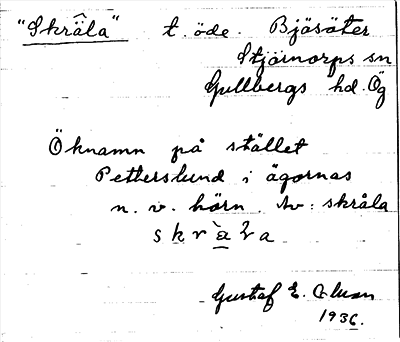 "Skråla" t. öde. Bjäsäter
Stjärnorps sn
Gullbergs hd. Ög
Öknamn på stället
Petterslund i ägornas
n. v. hörn. Av: skråla
s k r a l a
Gustaf E.
1936.